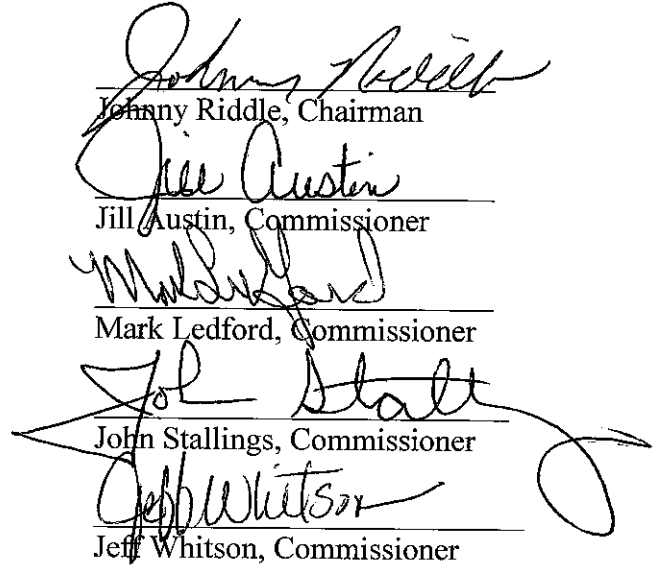 Johnny Riddle
Johnny Riddle, Chairman
Jill Austin
Jill Austin, Commissioner
Mark Ledford
Mark Ledford, Commissioner
John Stall
John Stallings, Commissioner
Jeff Whitson
Jeff Whitson, Commissioner